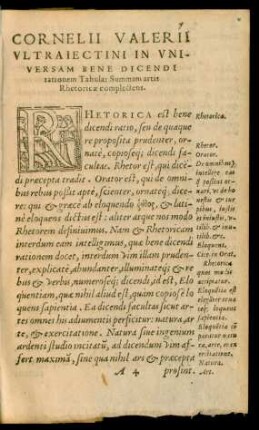 CORNELII VALERII
VLTRAIECTINI IN VNI-
VERSAM BENE DICENDI
rationem Tabula: Summam artis
Rhetoricæ complectens.
RHETORICA est bene
dicendi ratio, seu de quaque
re proposita prudenter, or-
natè, copioseq; dicendi fa-
cultas. Rhetor est, qui dicẽ-
di præcepta tradit. Orator est, qui de omni-
bus rebus possit aptè, scienter, ornateq; dice-
re: qui & græcè ab eloquendo & lati-
nè eloquens dictus est: aliter atque nos modo
Rhetorem definiuimus. Nam & Rhetoricam
interdum eam intelligimus, quæ bene dicendi
rationem docet, interdum vim illam pruden-
ter, explicatè, abundanter, illuminateq; & re-
bus & verbis, numeroseq; dicendi, id est, Elo
quentiam, quæ nihil aliud est, quàm copiosè lo
quens sapientia. Ea dicendi facultas sicut ar-
tes omnes his adiumentis perficitur: natura, ar
te, & exercitatione. Natura siue ingenium
ardenti studio incitatũ, ad dicendum vim af-
fert maximã, sine qua nihil ars & præcepta
A 4 prosint.
Rhetorica.
Rhetor.
Orator.
Eloquens.
Cic. in Orat.
Rhetorica
Eloquentia
Natura.
Ars.